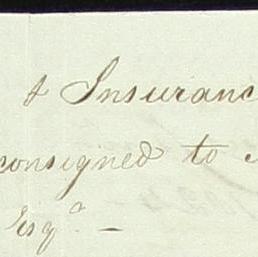 & Insuranc
consigned to
Esq^a. -